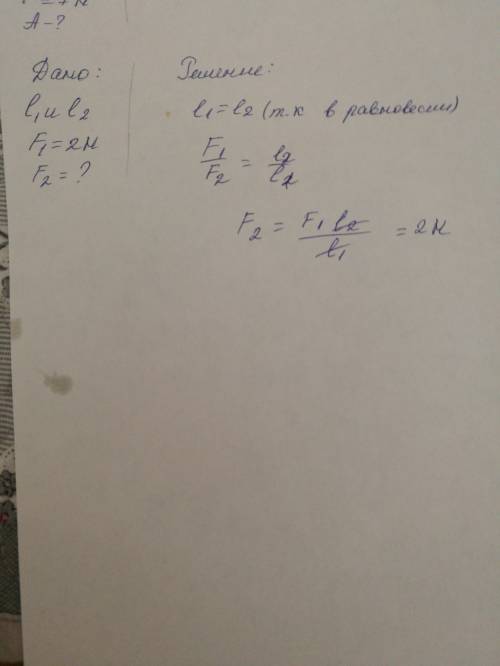 A-?
Дано:
l₁ и l₂
F₁=2Н
F₂=?
Решение:
l₁=l₂ (т.к в равновесии)
F₁/F₂ = l₂/l₁
F₂ = F₁ l₂/l₁ = 2Н